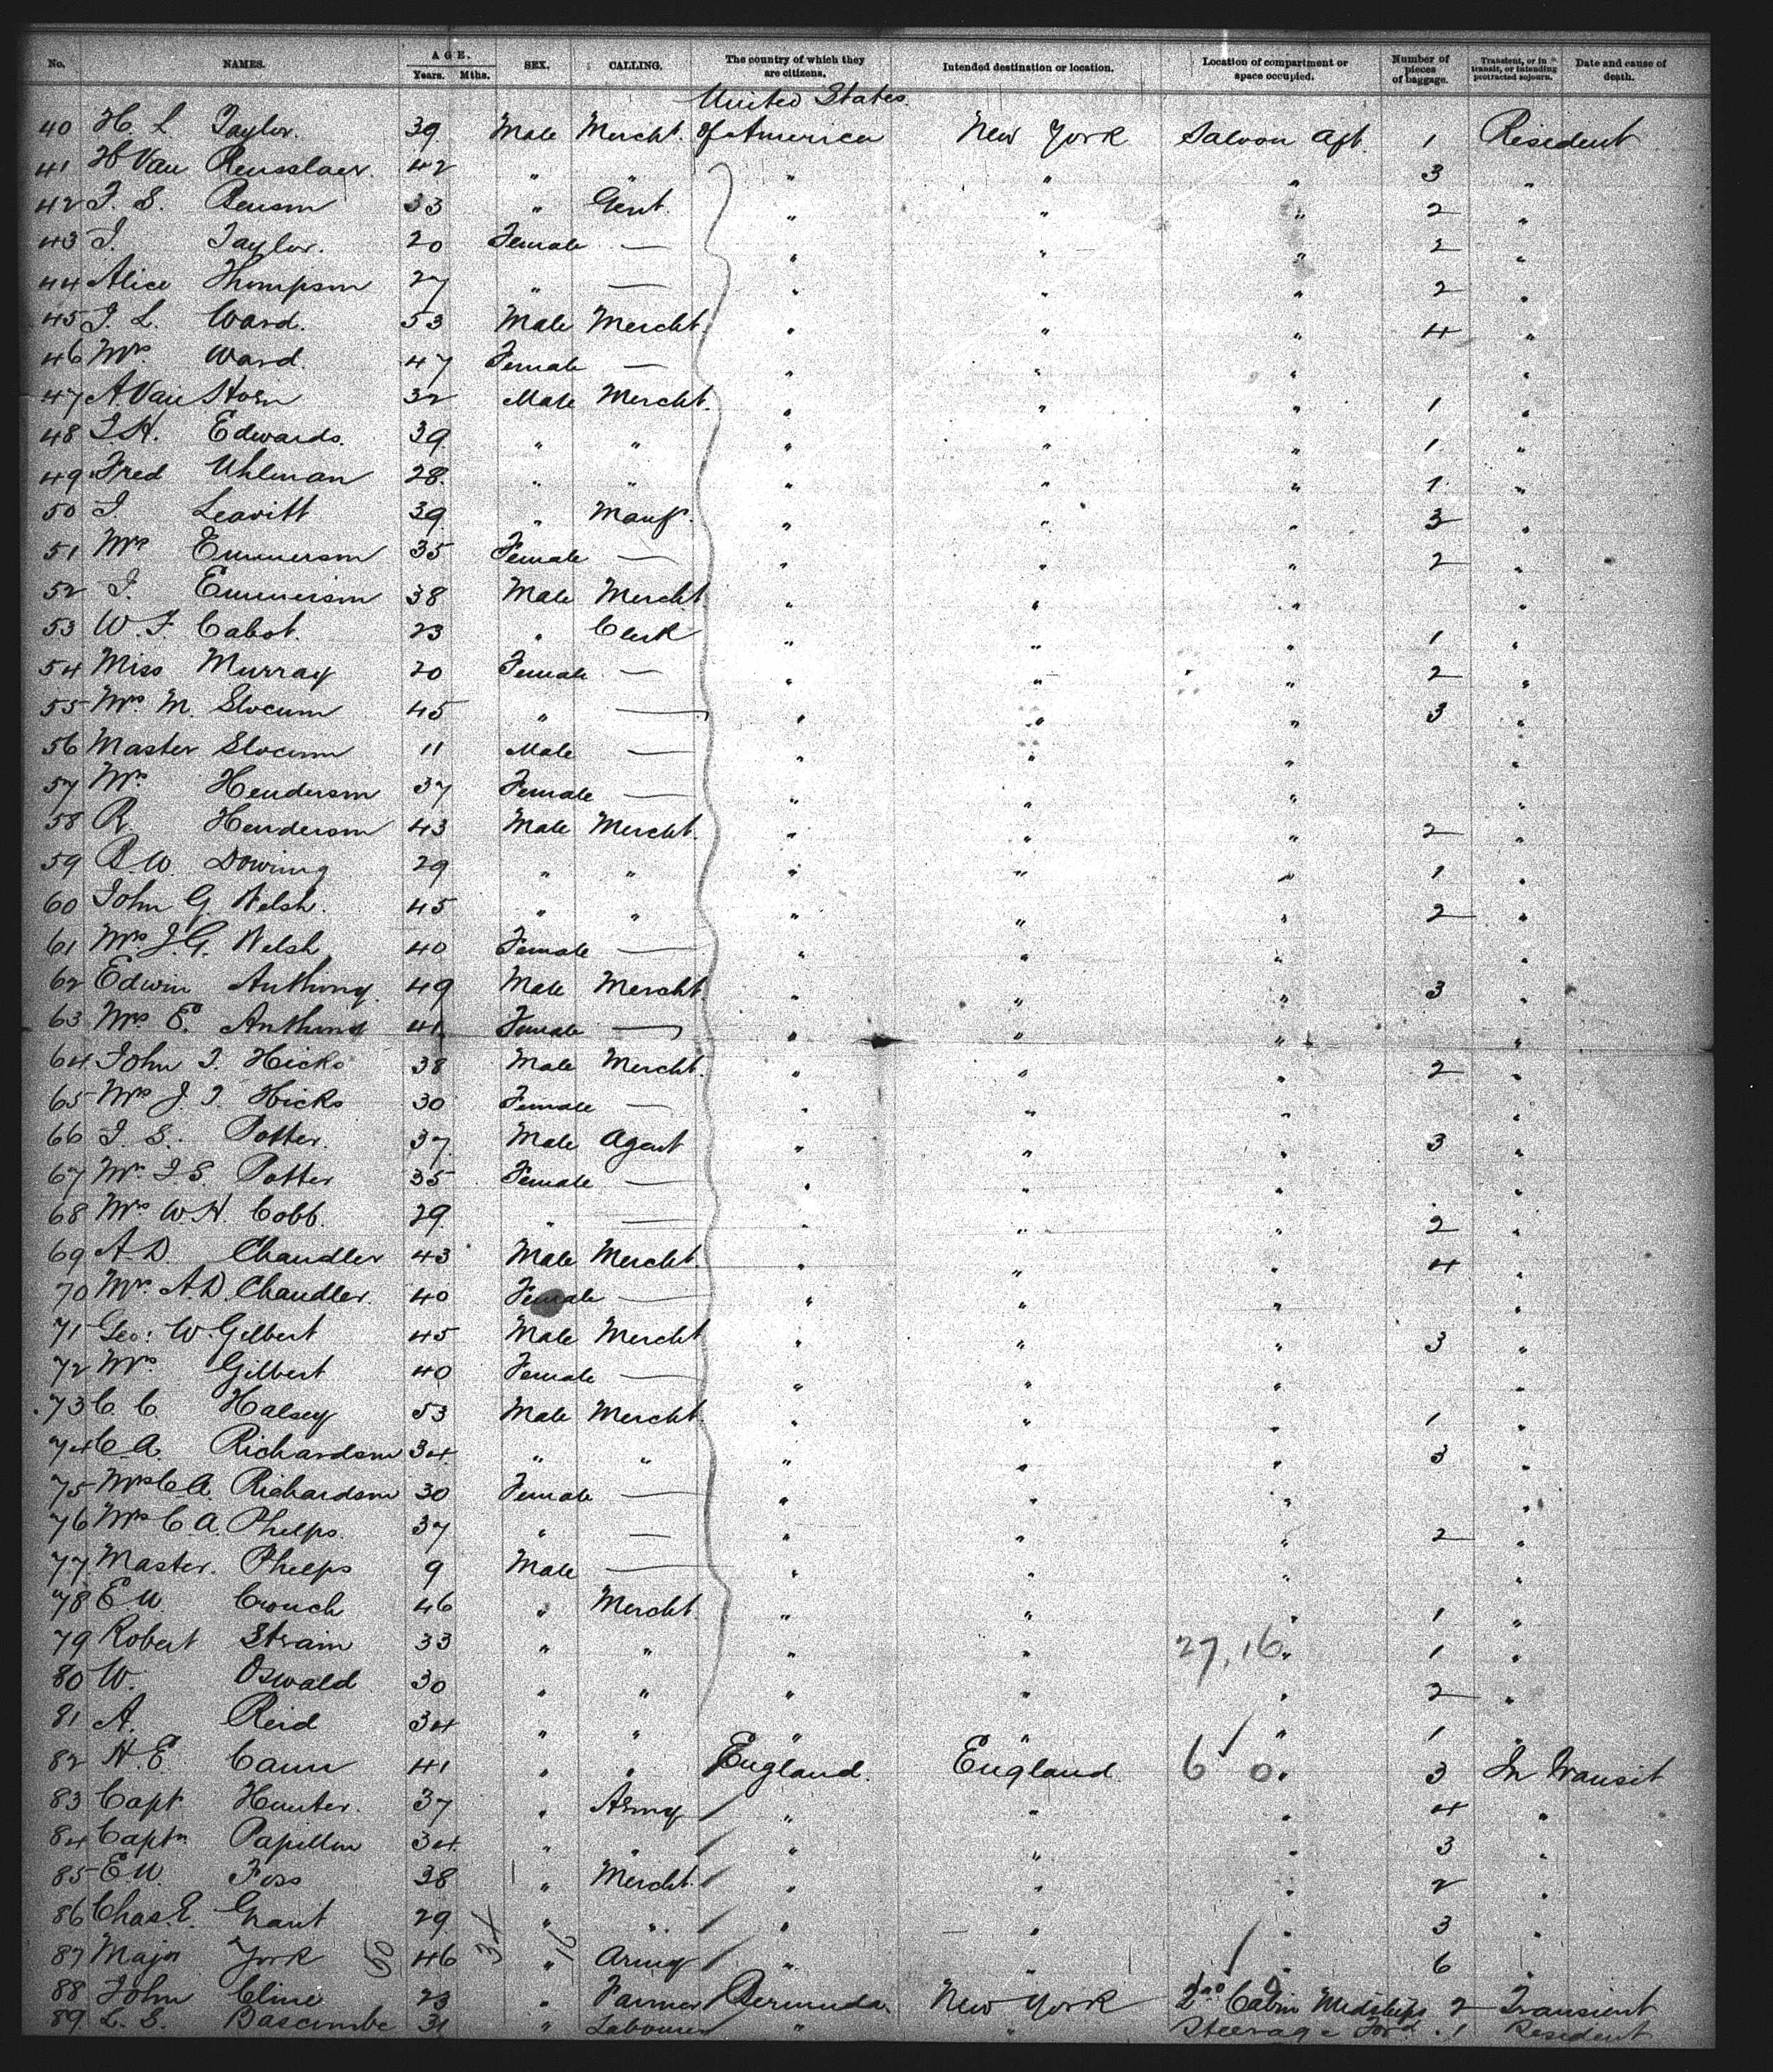 No. NAMES. AGE. Years. Mths. SEX. CALLING. The country of which they are citizens. Intended destination or location. Location of compartment or space occupied. Number of pieces of baggage. Transient, or in transit, or intending protracted sojourn. Date and cause of death.
United States
40 H. L. Taylor. 39 Male Mercht. of America New York Saloon Aft. 1 Resident
41 H Van Rensslaer. 42 " " " " " 3 "
42 33 " Gent. " " " 2 "
43 Taylor. 20 Female — " " " 2 "
44 Alice Thompson 27 " — " " " 2 "
45 J. L. Ward. 53 Male Mercht. " " " 4 "
46 Mrs Ward. 47 Female — " " " "
47 A. Van Horn 32 Male Mercht. " " " 1 "
48 J. H. Edwards. 39 " " " " " 1 "
49 Fred Uhlman 28 " " " " " 1 "
50 J. Leavitt 39 " Manfr. " " " 3 "
51 Mrs Emmerson 35 Female — " " " 2 "
52 J. Emmerson 38 Male Mercht. " " " "
53 W. F. Cabot. 23 " Clerk " " " 1 "
54 Miss Murray 20 Female — " " " 2 "
55 Mrs M. Slocum 45 " — " " " 3 "
56 Master Slocum 11 Male — " " " "
57 Mrs Henderson 37 Female — " " " "
58 R Henderson 43 Male Mercht. " " " 2 "
59 R. W. Dowing 29 " " " " " 1 "
60 John G. Welsh. 45 " " " " " 2 "
61 Mrs J. G. Welsh 40 Female — " " " "
62 Edwin Anthony 49 Male Mercht. " " " 3 "
63 Mrs E. Anthony 41 Female — " " " "
64 John J. Hicks 38 Male Mercht. " " " 2 "
65 Mrs J. J. Hicks 30 Female — " " " "
66 J. S. Potter. 37 Male Agent " " " 3 "
67 Mrs J. S. Potter 35 Female — " " " "
68 Mrs W. H. Cobb. 29 " — " " " 2 "
69 A. D. Chandler 43 Male Mercht. " " " 4 "
70 Mrs A. D. Chandler. 40 Female — " " " "
71 Geo: W. Gilbert 45 Male Mercht " " " 3 "
72 Mrs Gilbert 40 Female — " " " "
73 C. C. Halsey 53 Male Mercht. " " " 1 "
74 C A. Richardson 34 " " " " " 3 "
75 Mrs C A. Richardson 30 Female — " " " "
76 Mrs C A. Phelps. 37 " — " " " 2 "
77 Master. Phelps 9 Male — " " " "
78 E. W. Crouch 46 " Mercht. " " " 1 "
79 Robert Strain 33 " " " " 27, 16 " 1 "
80 W. Oswald 30 " " " " " 2 "
81 A. Reid 34 " " " " " 1 "
82 H. E. Cann 41 " " England. England 6 0 " 3 In Transit
83 Capt. Hunter. 37 " Army " " " 4 "
84 Captn Papillon 34 " " " " " 3 "
85 E. W. Foss 38 " Mercht. " " " 2 "
86 Chas. E. Grant 29 " " " " " 3 "
87 Major York 46 " Army " " " 6 "
88 John Cline 23 " Farmer Bermuda. New York 2nd Cabin Midships 2 Transient
89 L. S. Bascombe 31 " Labourer " " Steerage Ford. 1 Resident